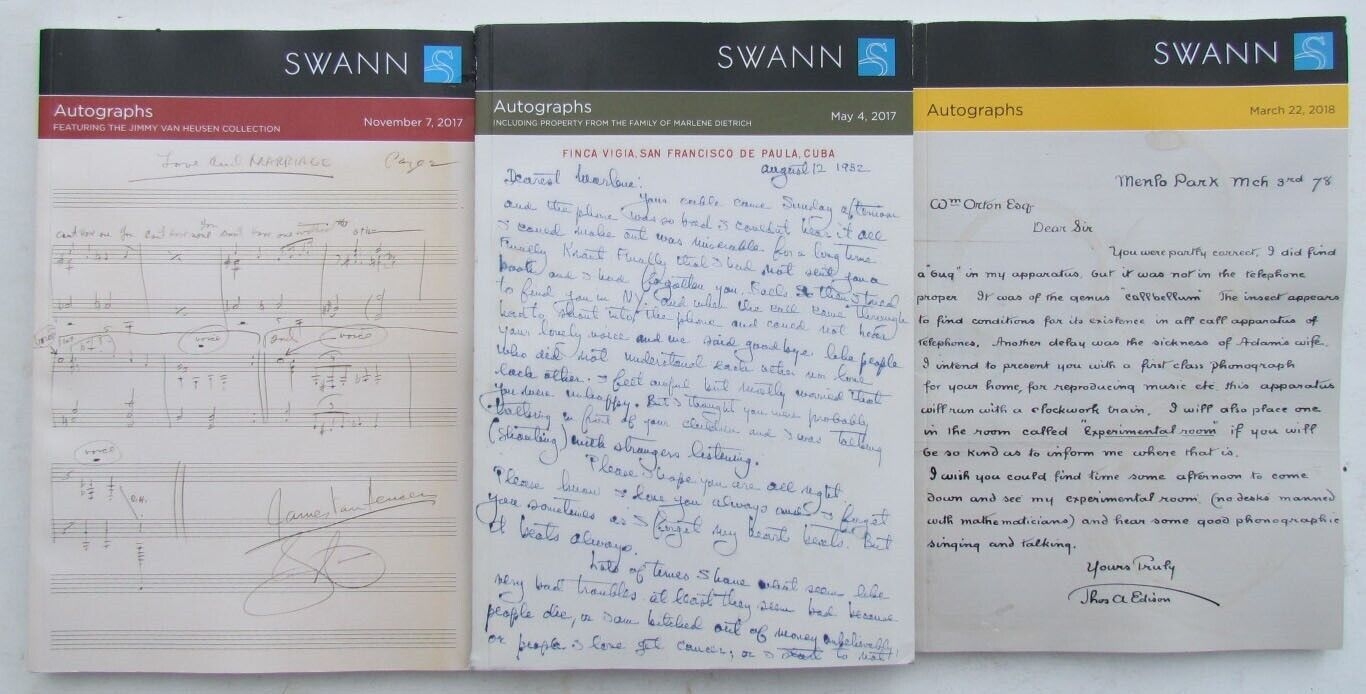 SWANN
Autographs
FEATURING THE JIMMY VAN HEUSEN COLLECTION
November 7, 2017
Love and MARRIAGE
can't have one
other
voice
2nd
voice
voice
James Van Heusen
SWANN
Autographs
INCLUDING PROPERTY FROM THE FAMILY OF MARLENE DIETRICH
May 4, 2017
FINCA VIGIA, SAN FRANCISCO DE PAULA, CUBA
August 12 1952
Dearest Marlene:
Your cable came Sunday afternoon
and the phone was so bad I couldn't hear it all
I could make out was miserable for a long time
Finally Knaut Finally that I had not sent you a
book and I had forgotten you. than I tried
to find you in NY and when the call came through
had to shout into the phone and could not hear
your lovely voice and we said goodbye like people
who did not understand each other nor love
each other. I feel awful but mostly worried that
you were unhappy. But I thought you were probably
talking in front of your children and I was talking
(shouting) with strangers listening.
Please I hope you are all right.
Please know I love you always and I forget
you sometimes as I forget my heart beats. But
it beats always.
Lots of times I have what seem like
very bad troubles, at least they seem bad because
people die, or I am bitched out of money unbelievably
or people I love get cancer; or I to not
SWANN
Autographs
March 22, 2018
Menlo Park Mch 3rd 78
Wm Orton Esq.
Dear Sir
You were partly correct, I did find
a "bug" in my apparatus, but it was not in the telephone
proper It was of the genus "callbellum" The insect appears
to find conditions for its existence in all call apparatus of
telephones. Another delay was the sickness of Adams wife,
I intend to present you with a first class phonograph
for your home, for reproducing music etc. this apparatus
will run with a clockwork train, I will also place one
in the room called "Experimental room" if you will
be so kind as to inform me where that is.
I wish you could find time some afternoon to come
down and see my experimental room (no desks manned
with mathematicians) and hear some good phonographic
singing and talking.
Yours Truly
Thos A Edison